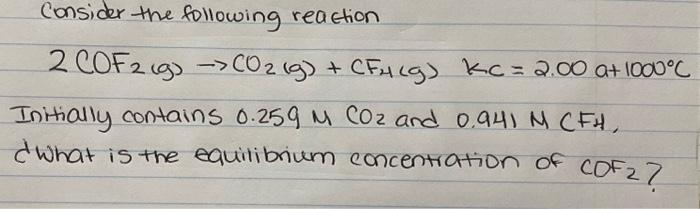 Consider the following reaction
2 COF2 (g) → CO2 (g) + CF4 (g) Kc = 2.00 at 1000°C
Initially contains 0.259 M CO2 and 0.941 M CF4,
¿What is the equilibrium concentration of COF2?